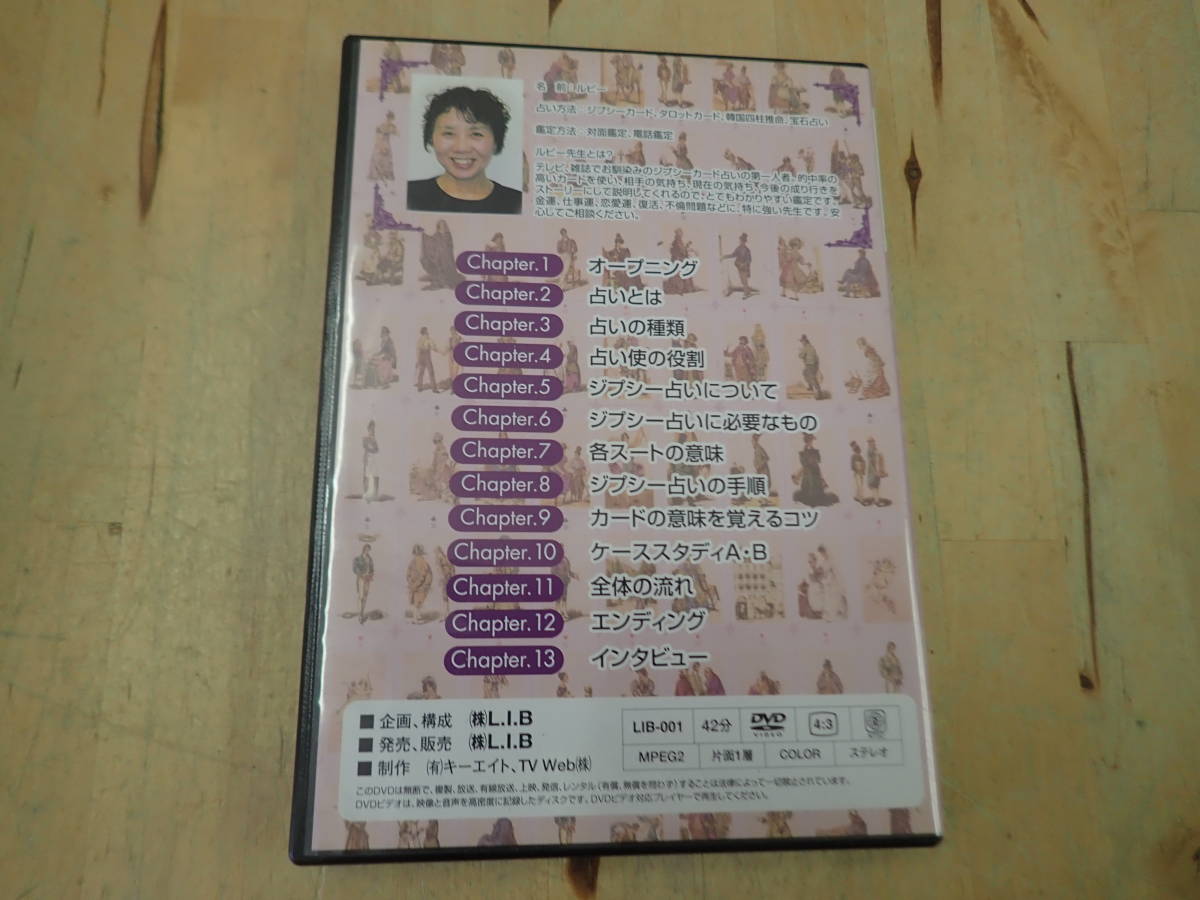 名　前：ルビー
占い方法：ジプシーカード、タロットカード、韓国四柱推命、宝石占い
鑑定方法：対面鑑定、電話鑑定
ルビー先生とは？
テレビ、雑誌でお馴染みのジプシーカード占いの第一人者。的中率の
高いカードを使い、相手の気持ち、現在の気持ち、今後の成り行きを
ストーリーにして説明してくれるので、とてもわかりやすい鑑定です。
金運、仕事運、恋愛運、復活、不倫問題などに、特に強い先生です。安
心してご相談ください。
Chapter.1 オープニング
Chapter.2 占いとは
Chapter.3 占いの種類
Chapter.4 占い使の役割
Chapter.5 ジプシー占いについて
Chapter.6 ジプシー占いに必要なもの
Chapter.7 各スートの意味
Chapter.8 ジプシー占いの手順
Chapter.9 カードの意味を覚えるコツ
Chapter.10 ケーススタディA・B
Chapter.11 全体の流れ
Chapter.12 エンディング
Chapter.13 インタビュー
■ 企画、構成 ㈱L.I.B
■ 発売、販売 ㈱L.I.B
■ 制作 ㈲キーエイト、TV Web㈱
LIB-001 42分 DVD VIDEO 4:3 2
MPEG2 片面1層 COLOR ステレオ
このDVDは無断で、複製、放送、有線放送、上映、発信、レンタル(有償、無償を問わず)することは法律によって一切禁止されています。
DVDビデオは、映像と音声を高密度に記録したディスクです。DVDビデオ対応プレイヤーで再生してください。